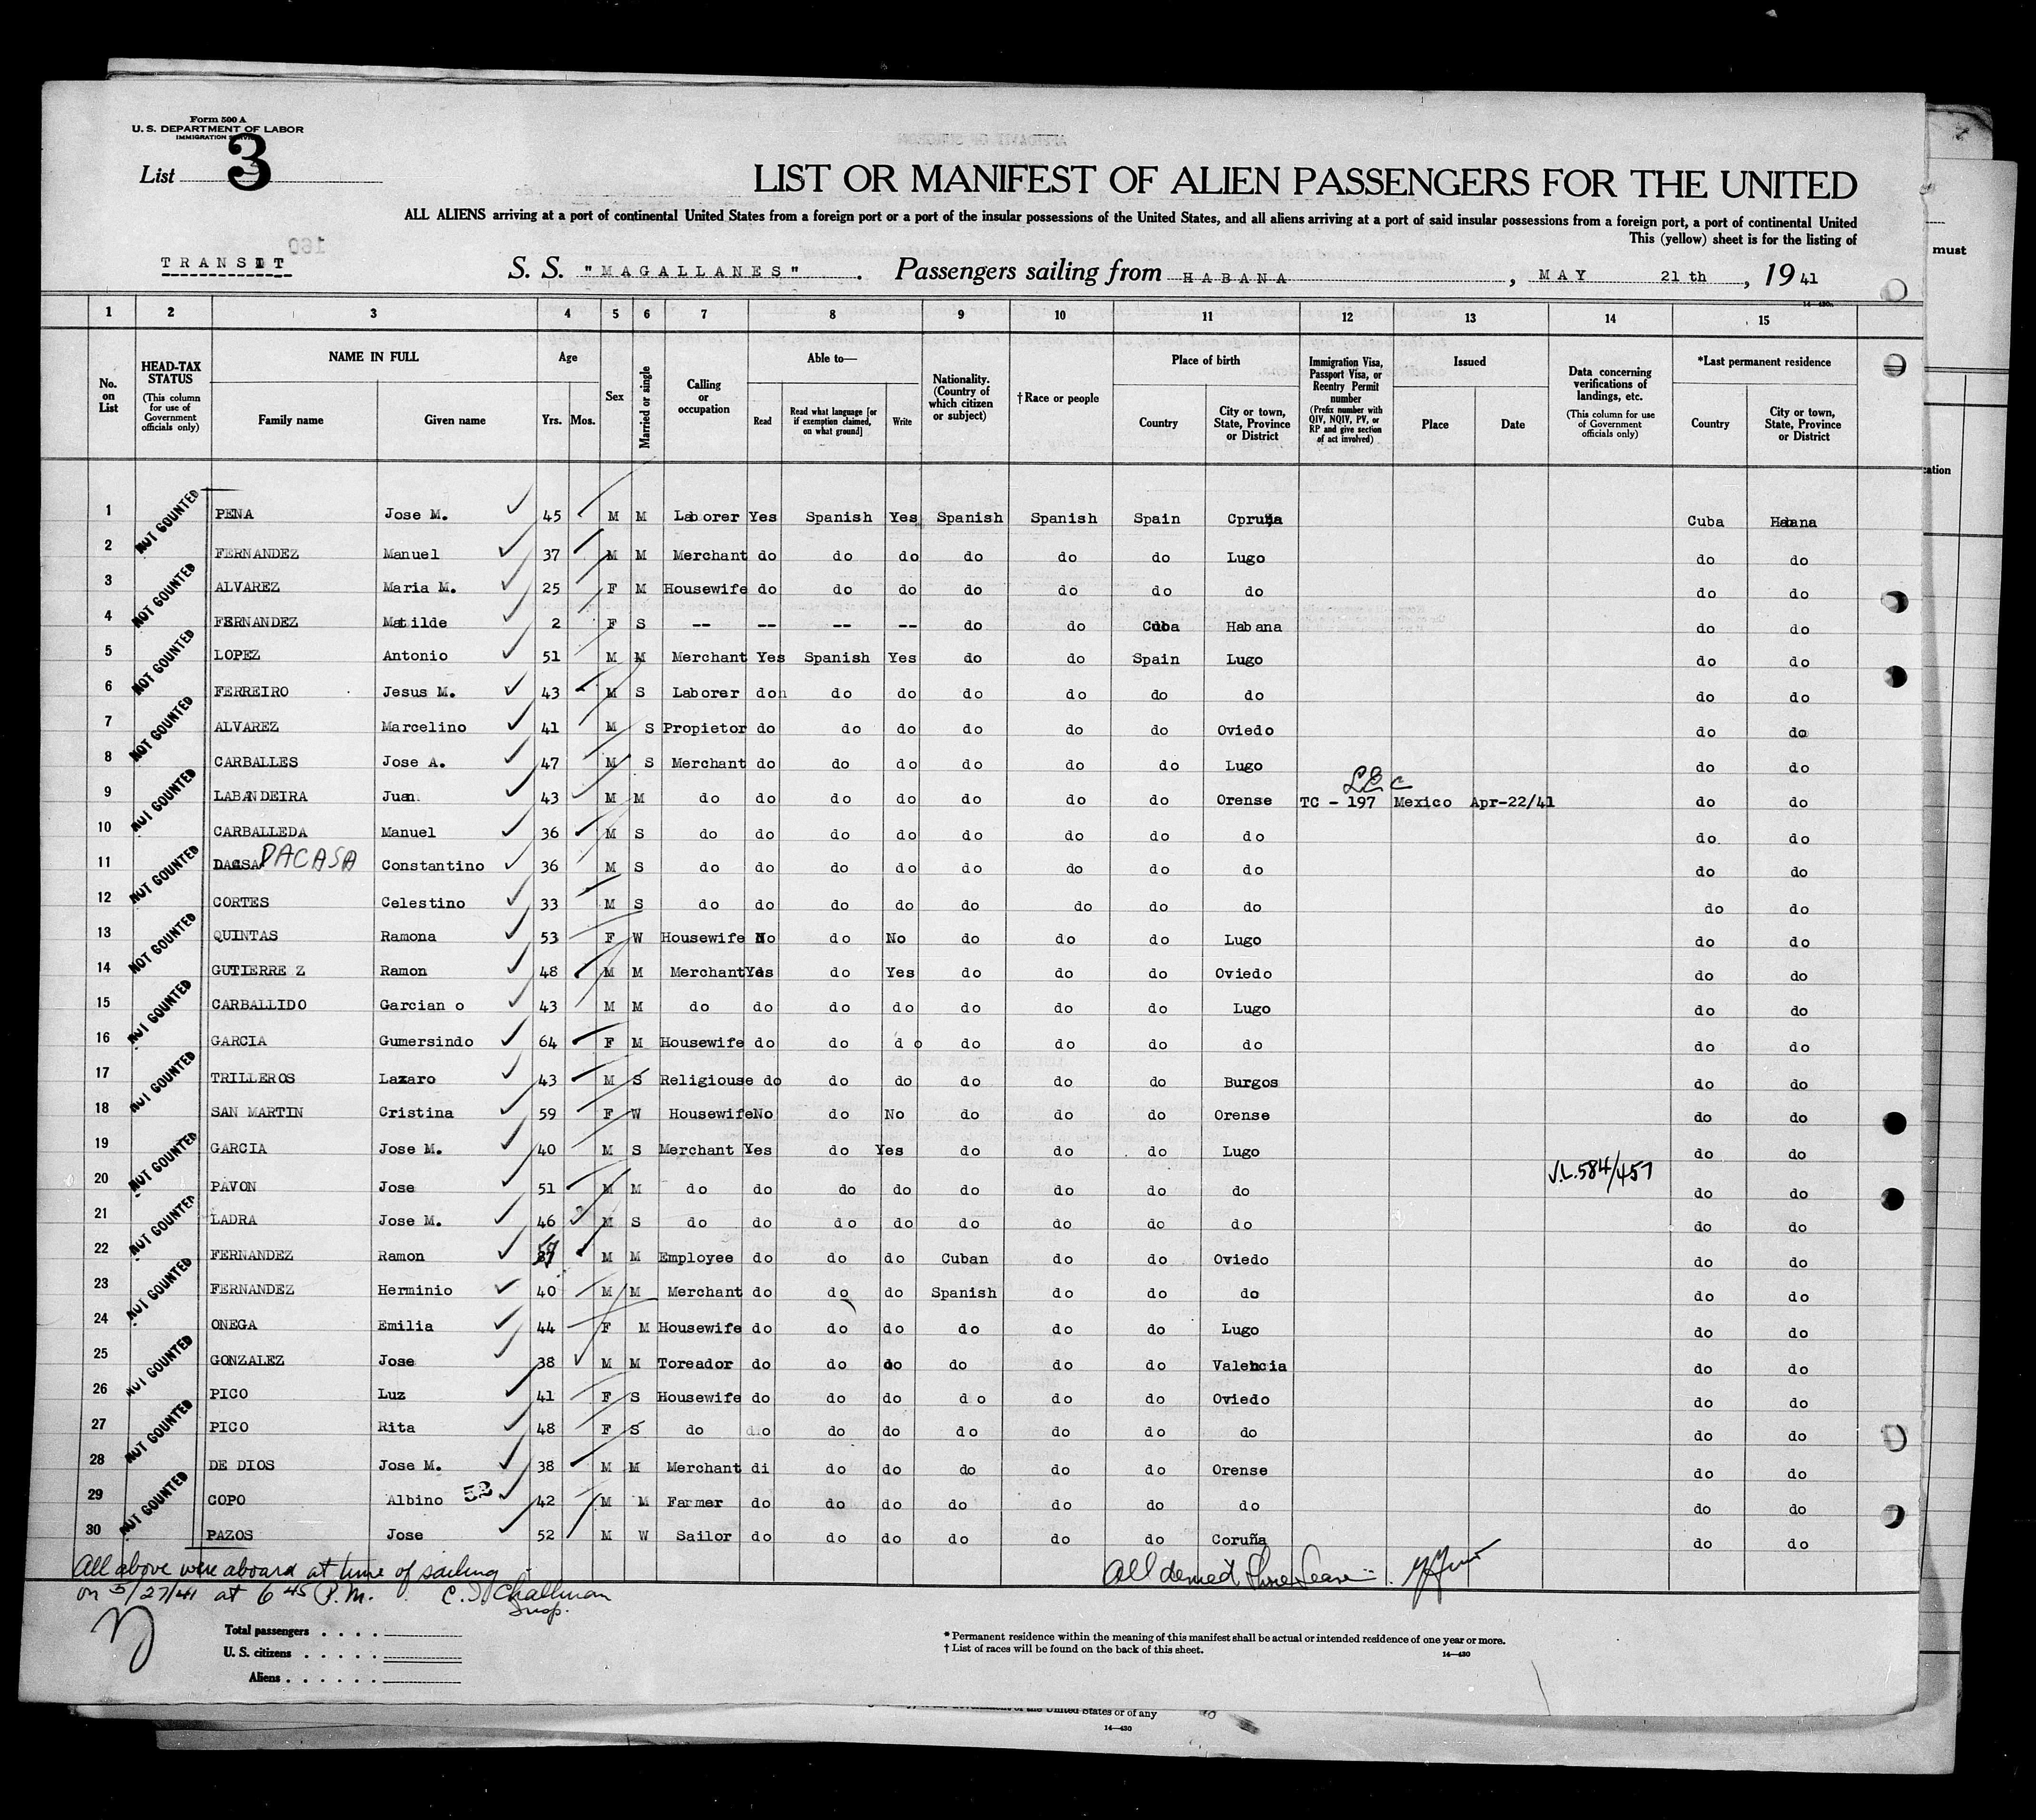 Form 500 A
U. S. DEPARTMENT OF LABOR
IMMIGRATION
List 3
LIST OR MANIFEST OF ALIEN PASSENGERS FOR THE UNITED
ALL ALIENS arriving at a port of continental United States from a foreign port or a port of the insular possessions of the United States, and all aliens arriving at a port of said insular possessions from a foreign port, a port of continental United
This (yellow) sheet is for the listing of
TRANSIT S. S. "MAGALLANES" . Passengers sailing from HABANA , MAY 21th , 19 41
1 2 3 4 5 6 7 8 9 10 11 12 13 14 15
No. on List
HEAD-TAX STATUS (This column for use of Government officials only)
NAME IN FULL Family name Given name
Age Yrs. Mos.
Sex
Married or single
Calling or occupation
Able to— Read Read what language [or if exemption claimed, on what ground] Write
Nationality. (Country of which citizen or subject)
†Race or people
Place of birth Country City or town, State, Province or District
Immigration Visa, Passport Visa, or Reentry Permit number (Prefix number with QIV, NQIV, PV, or RP and give section of act involved)
Issued Place Date
Data concerning verifications of landings, etc. (This column for use of Government officials only)
*Last permanent residence Country City or town, State, Province or District
1 NOT COUNTED PENA Jose M. 45 M M Laborer Yes Spanish Yes Spanish Spanish Spain Cpruña Cuba Habana
2 FERNANDEZ Manuel 37 M M Merchant do do do do do do Lugo do do
3 NOT COUNTED ALVAREZ Maria M. 25 F M Housewife do do do do do do do do do
4 FERNANDEZ Matilde 2 F S -- -- -- -- do do Cuba Habana do do
5 NOT COUNTED LOPEZ Antonio 51 M M Merchant Yes Spanish Yes do do Spain Lugo do do
6 FERREIRO Jesus M. 43 M S Laborer don do do do do do do do do
7 NOT COUNTED ALVAREZ Marcelino 41 M S Propietor do do do do do do Oviedo do do
8 CARBALLES Jose A. 47 M S Merchant do do do do do do Lugo do do
9 NOT COUNTED LABANDEIRA Juan 43 M M do do do do do do do Orense TC - 197 Mexico Apr-22/41 do do
10 CARBALLEDA Manuel 36 M S do do do do do do do do do. do
11 NOT COUNTED DACASA Constantino 36 M S do do do do do do do do do do
12 CORTES Celestino 33 M S do do do do do do do do do do
13 NOT COUNTED QUINTAS Ramona 53 F W Housewife No do No do do do Lugo do do
14 GUTIERRE Z Ramon 48 M M Merchant Yes do Yes do do do Oviedo do do
15 NOT COUNTED CARBALLIDO Garcian o 43 M M do do do do do do do Lugo do do
16 GARCIA Gumersindo 64 F M Housewife do do d o do do do do do do
17 NOT COUNTED TRILLEROS Lazaro 43 M S Religiouse do do do do do do Burgos do do
18 SAN MARTIN Cristina 59 F W Housewife No do No do do do Orense do do
19 NOT COUNTED GARCIA Jose M. 40 M S Merchant Yes do Yes do do do Lugo do do
20 PAVON Jose 51 M M do do do do do do do do V.L.584/457 do do
21 NOT COUNTED LADRA Jose M. 46 M S do do do do do do do do do do
22 FERNANDEZ Ramon M M Employee do do do Cuban do do Oviedo do do
23 NOT COUNTED FERNANDEZ Herminio 40 M M Merchant do do do Spanish do do do do do
24 ONEGA Emilia 44 F M Housewife do do do do do do Lugo do do
25 NOT COUNTED GONZALEZ Jose 38 M M Toreador do do do do do do Valencia do do
26 PICO Luz 41 F S Housewife do do do d o do do Oviedo do do
27 NOT COUNTED PICO Rita 48 F S do do do do do do do do do do
28 DE DIOS Jose M. 38 M M Merchant di do do do do do Orense do do
29 NOT COUNTED COPO Albino 52 42 M M Farmer do do do do do do do do do
30 PAZOS Jose 52 M W Sailor do do do do do do Coruña do do
All above were aboard at time of sailing
on 5/27/41 at 6 45 P.M. C. J. Challman
Insp.
All denied Shore Leave
Total passengers . . . .
U. S. citizens . . . . .
Aliens . . . . . .
* Permanent residence within the meaning of this manifest shall be actual or intended residence of one year or more.
† List of races will be found on the back of this sheet.
14—430
must
United States or of any
14—430